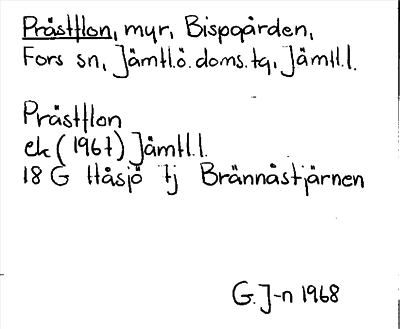 Prästflon, myr, Bispgården,
Fors sn, Jämtl.ö.doms.tg, Jämtl.l.
Prästflon
ek (1967) Jämtl.l.
18 G Håsjö 7j Brännåstjärnen
G. J-n 1968